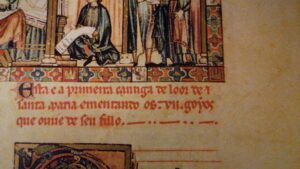 Esta e a primeira cantiga de loor de s
santa maria ementando os .vii. goyos
que ouue de seu fillo.